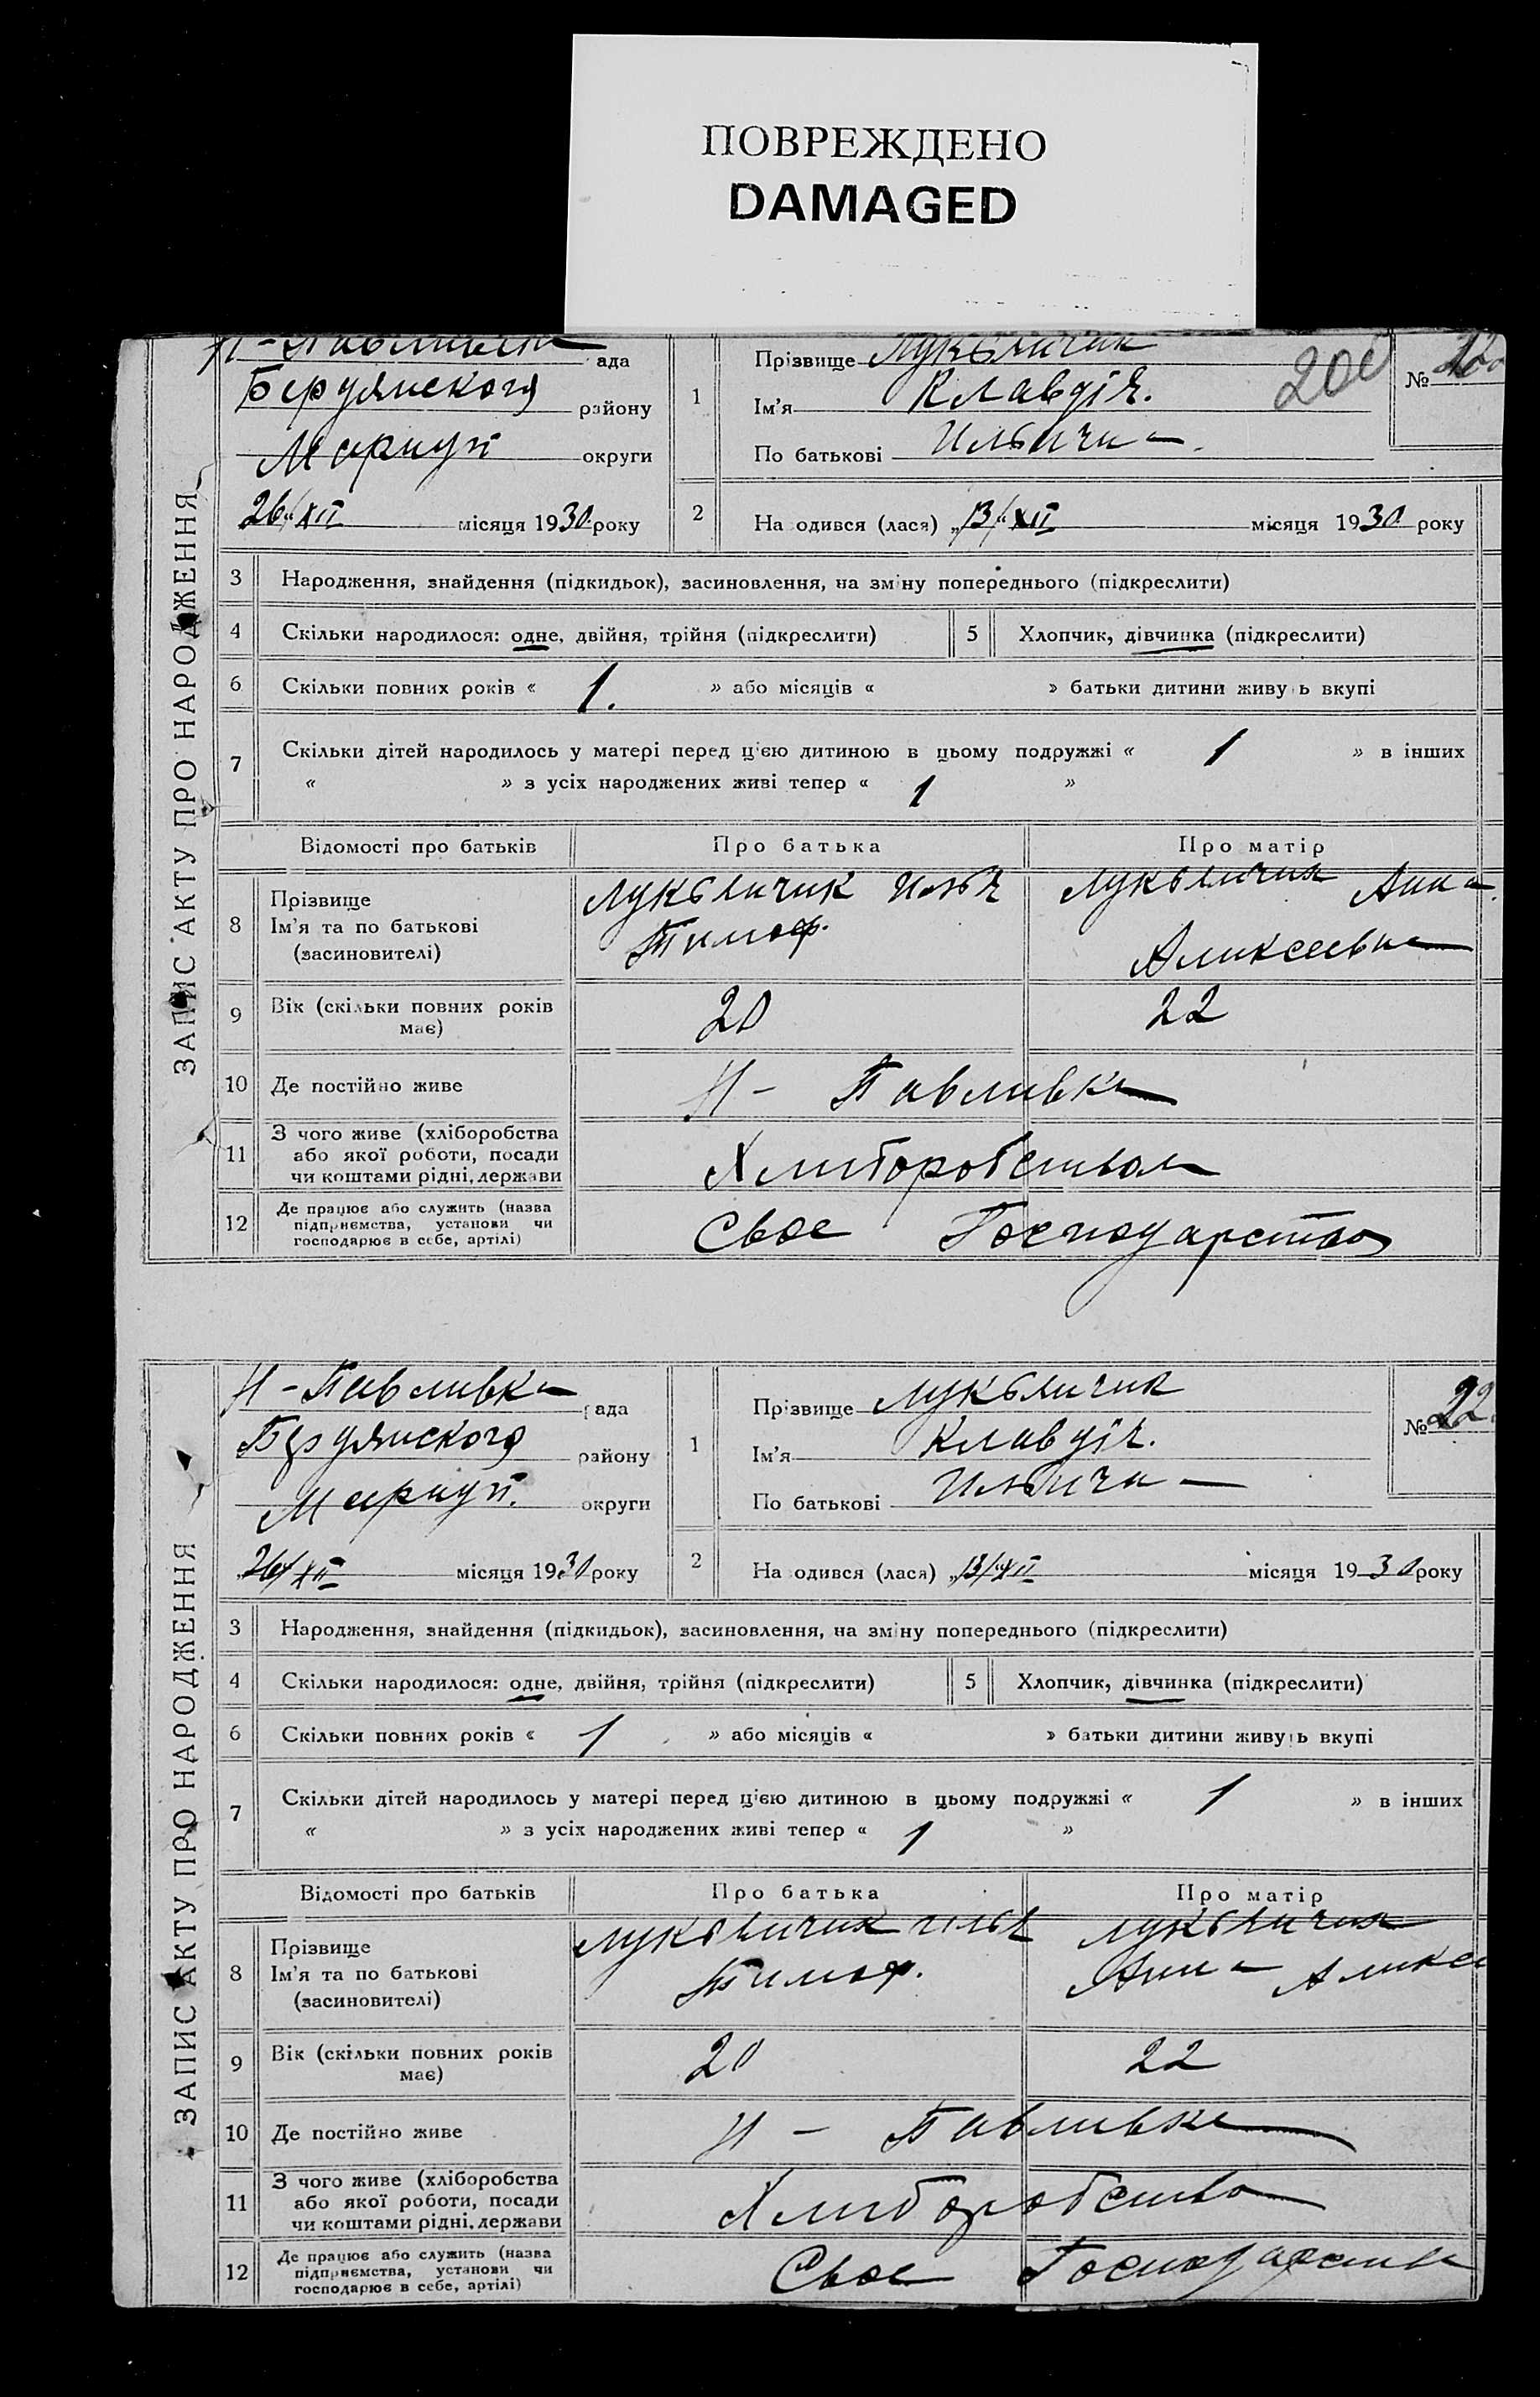 ПОВРЕЖДЕНО
DAMAGED
ЗАПИС АКТУ ПРО НАРОДЖЕННЯ
Н-Павливка ада
Бердянского району
Мариуп округи
26/XII місяця 1930 року
1
Прізвище Лукъянчик
Ім'я Клавдія.
По батькові Ильични
200
№
2
На одився (лася) „13/“ XII місяця 1930 року
3 Народження, знайдення (підкидьок), засиновлення, на зміну попереднього (підкреслити)
4 Скільки народилося: одне, двійня, трійня (підкреслити) 5 Хлопчик, дівчинка (підкреслити)
6 Скільки повних років « 1. » або місяців « » батьки дитини живу ь вкупі
7 Скільки дітей народилось у матері перед цією дитиною в цьому подружжі « 1 » в інших
« » з усіх народжених живі тепер « 1 »
Відомості про батьків Про батька Про матір
8 Прізвище
Ім'я та по батькові
(засиновителі)
Лукъянчик Илья
Тимоф.
Лукъянчик Анна
Аликсеевна
9 Вік (скільки повних років
має)
20 22
10 Де постійно живе Н- Павливка
11 З чого живе (хліборобства
або якої роботи, посади
чи коштами рідні, держави
Хлиборобством
12 Де працює або служить (назва
підприємства, установи чи
господарює в себе, артілі)
Свое Господарство
ЗАПИС АКТУ ПРО НАРОДЖЕННЯ
Н-Павливка ада
Бердянского району
Мариуп. округи
26/XII місяця 1930 року
1
Прізвище Лукъянчик
Ім'я Клавдія.
По батькові Ильични
№ 22
2
На одився (лася) „13/“ XII місяця 1930 року
3 Народження, знайдення (підкидьок), засиновлення, на зміну попереднього (підкреслити)
4 Скільки народилося: одне, двійня, трійня (підкреслити) 5 Хлопчик, дівчинка (підкреслити)
6 Скільки повних років « 1 » або місяців « » батьки дитини живу ь вкупі
7 Скільки дітей народилось у матері перед цією дитиною в цьому подружжі « 1 » в інших
« » з усіх народжених живі тепер « 1 »
Відомості про батьків Про батька Про матір
8 Прізвище
Ім'я та по батькові
(засиновителі)
Лукъянчик Илья
Тимоф.
Лукъянчик
Анна Аликсе
9 Вік (скільки повних років
має)
20 22
10 Де постійно живе Н - Павливка
11 З чого живе (хліборобства
або якої роботи, посади
чи коштами рідні, держави
Хлиборобство
12 Де працює або служить (назва
підприємства, установи чи
господарює в себе, артілі)
Свое Господарство